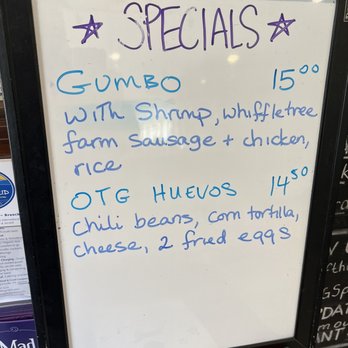 SPECIALS
GUMBO 15⁰⁰
with Shrimp, whiffletree
farm sausage + chicken,
rice
OTG HUEVOS 14⁵⁰
chili beans, corn tortilla,
cheese, 2 fried eggs
Mad